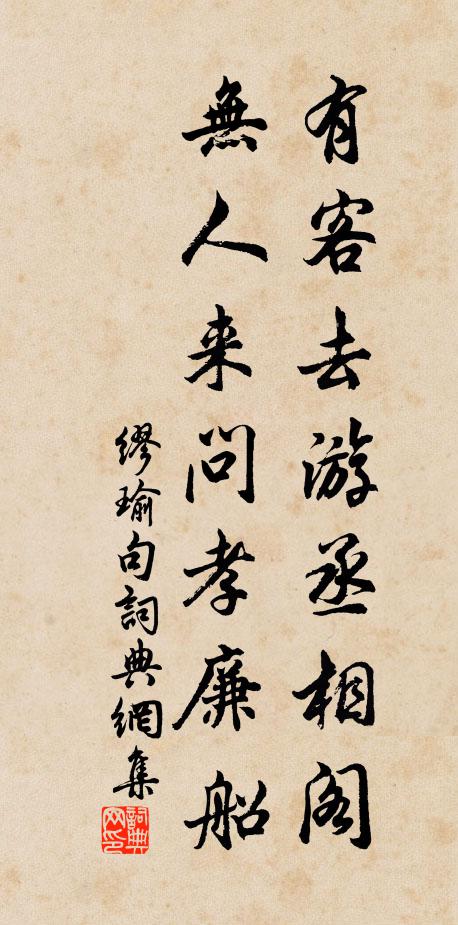 有客去游丞相阁
無人来問孝廉船
缪瑜句詞典網集
詞典网印